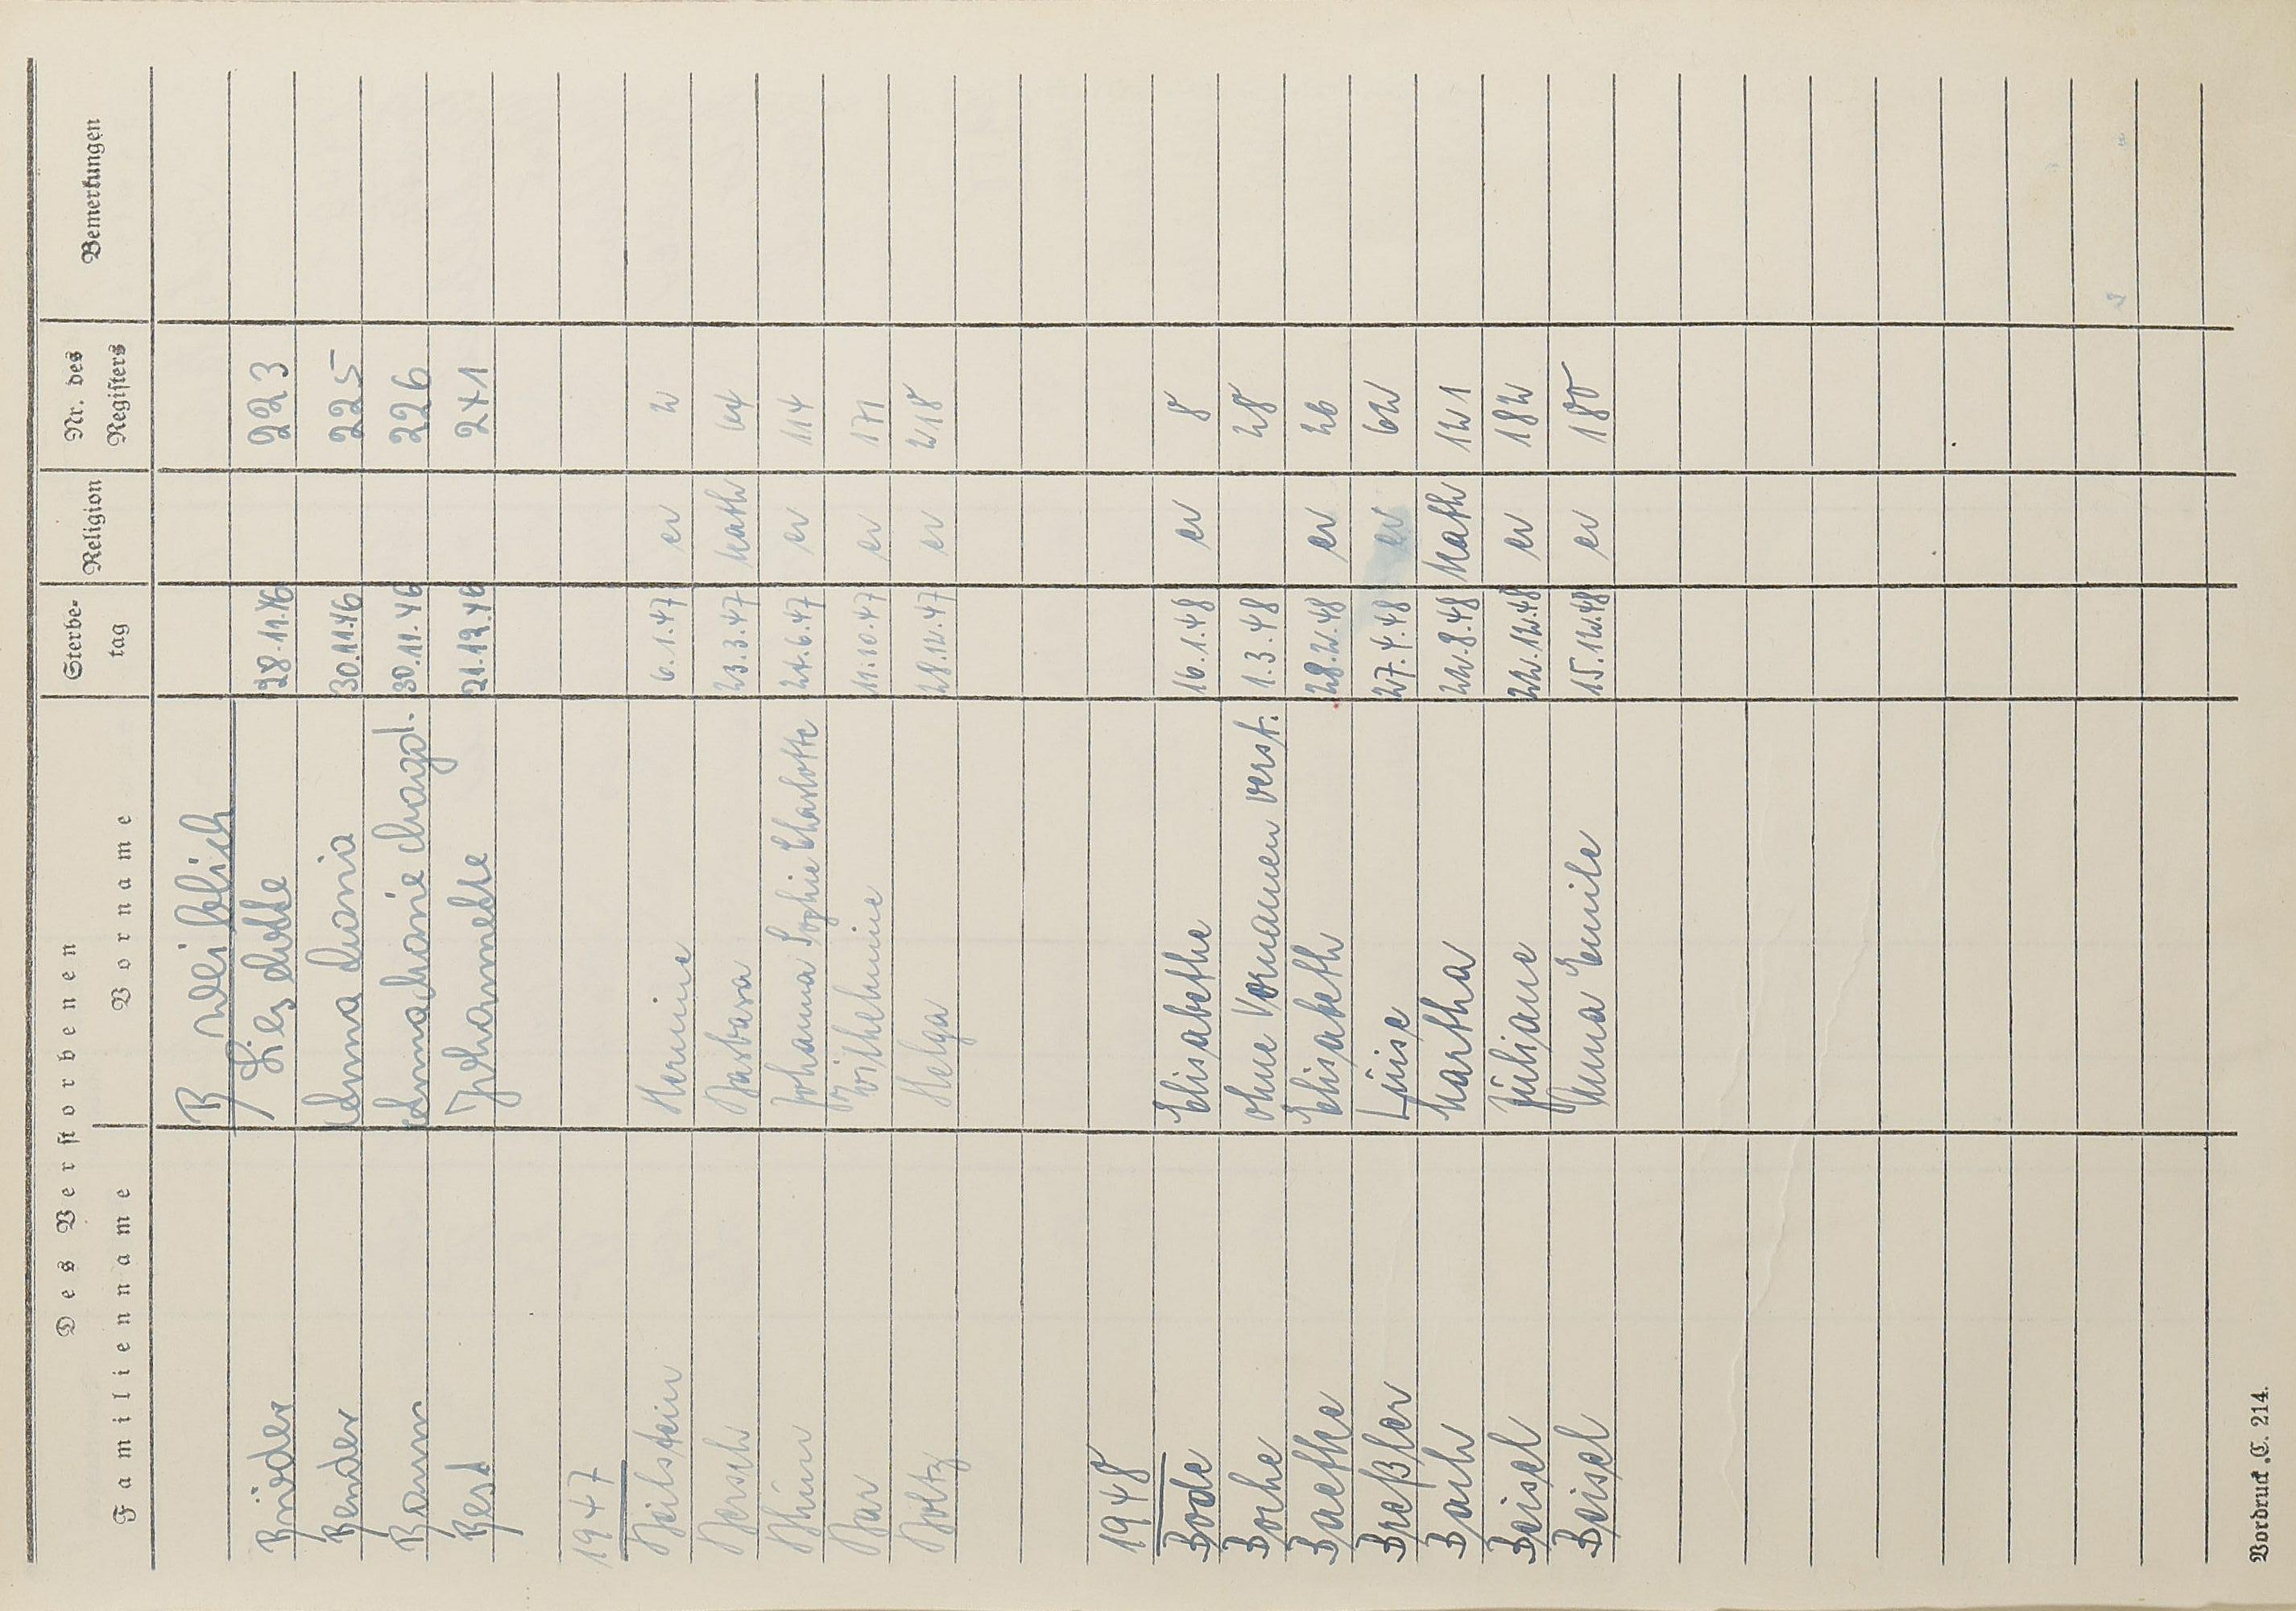 Des Verstorbenen
Familienname Vorname Sterbe-tag Religion Nr. des Registers Bemerkungen
B weiblich
Brüder Lieselotte 28.11.46 223
Bender Anna Maria 30.11.46 225
Braun Anna Marie Magd. 30.11.46 226
Best Johannette 21.12.46 241
1947
Beilstein Hermine 6.1.47 ev 2
Bersch Barbara 23.3.47 kath 64
Blum Johanna Sophie Charlotte 24.6.47 ev 114
Bar Wilhelmine 11.10.47 ev 171
Boltz Helga 28.12.47 ev 218
1948
Bode Elisabethe 16.1.48 ev 8
Bothe ohne Vornamen verst. 1.3.48 28
Baethe Elisabeth 28.2.48 ev 26
Breßler Luise 27.4.48 ev 62
Bach Martha 22.8.48 kath 121
Beisel Juliane 22.12.48 ev 182
Beisel Anna Emilie 15.12.48 ev 180
Vordruck C. 214.